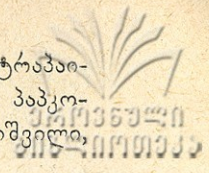 ტრაპაი-
პაპკო-
იშვილი,
ეროვნული
ბიბლიოთეკა